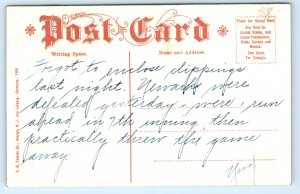 Post Card
Writing Space.
Name and Address.
Place the Stamp Here
One Cent for
United States and
Island Possessions,
Cuba, Canada and
Mexico.
Two Cents
For Foreign.
Forgot to enclose clippings
last night. Newarks were
defeated yesterday, were 1 run
ahead in 7th inning, then
practically threw the game
away.